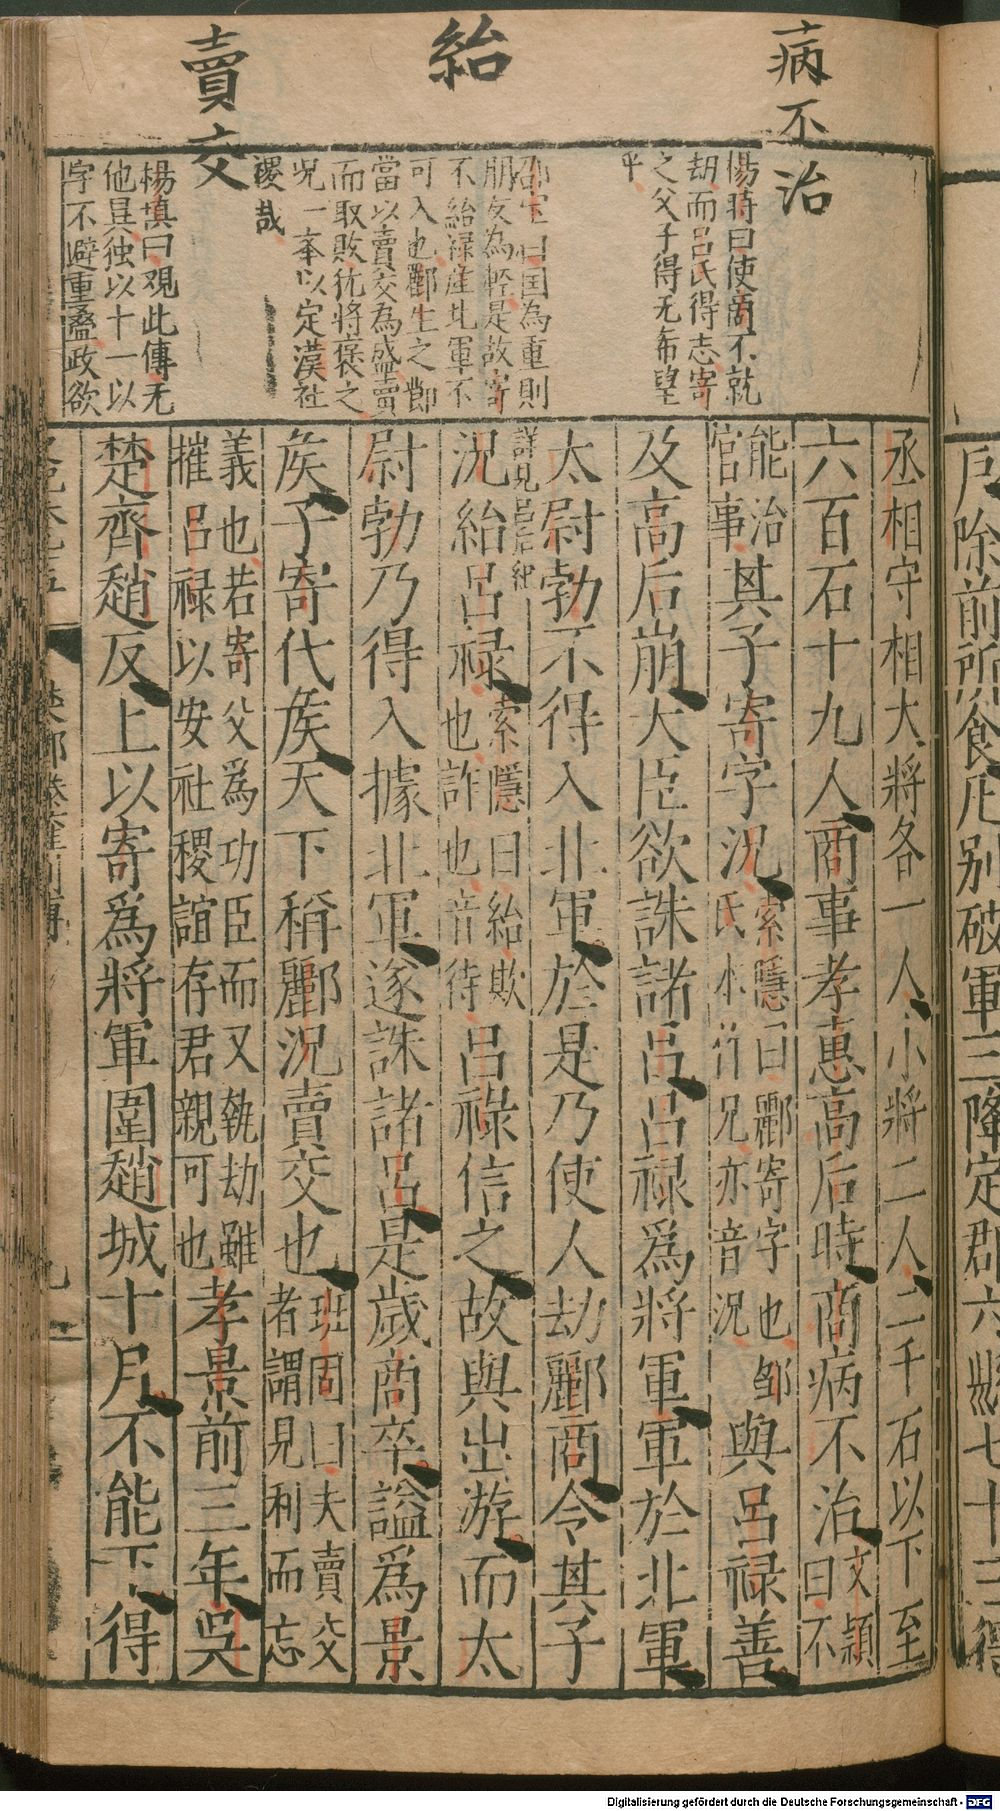 病不治
紿
賣交
楊時曰使商不就
劫而呂氏得志寄
之父子得无希望
乎
邵宝曰国為重則
朋友為輕是故寄
不紿禄產北軍不
可入也酈生之酈
當以賣交為盛賣
而取敗犹將褒之
况一峷以定漢社
稷哉
楊慎曰观此傳无
他異独以十一以
字不避重叠政欲
戶除前所食凡別破軍三降定郡六縣七十三得
丞相守相大將各一人小將二人二千石以下至
六百石十九人商事孝惠高后時商病不治文穎曰不
能治官事其子寄字况索隱曰酈寄字也鄒氏本作兄亦音況與呂禄善
及高后崩大臣欲誅諸呂呂禄爲將軍軍於北軍
太尉勃不得入北軍於是乃使人劫酈商令其子
詳見呂后紀
況紿呂禄索隱曰紿欺也詐也音待呂祿信之故與出游而太
尉勃乃得入據北軍遂誅諸呂是歲商卒謚爲景
矦子寄代矦天下稱酈況賣交也班固曰夫賣交者謂見利而忘
義也若寄父爲功臣而又執劫雖摧呂禄以安社稷誼存君親可也孝景前三年吳
楚齊趙反上以寄爲將軍圍趙城十月不能下得
Digitalisierung gefördert durch die Deutsche Forschungsgemeinschaft - DFG